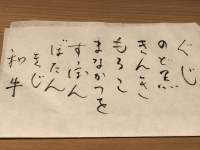 ぐじ
のど黒
きんき
もろこ
まながつを
すっぽん
ぼたん
きじ
和牛